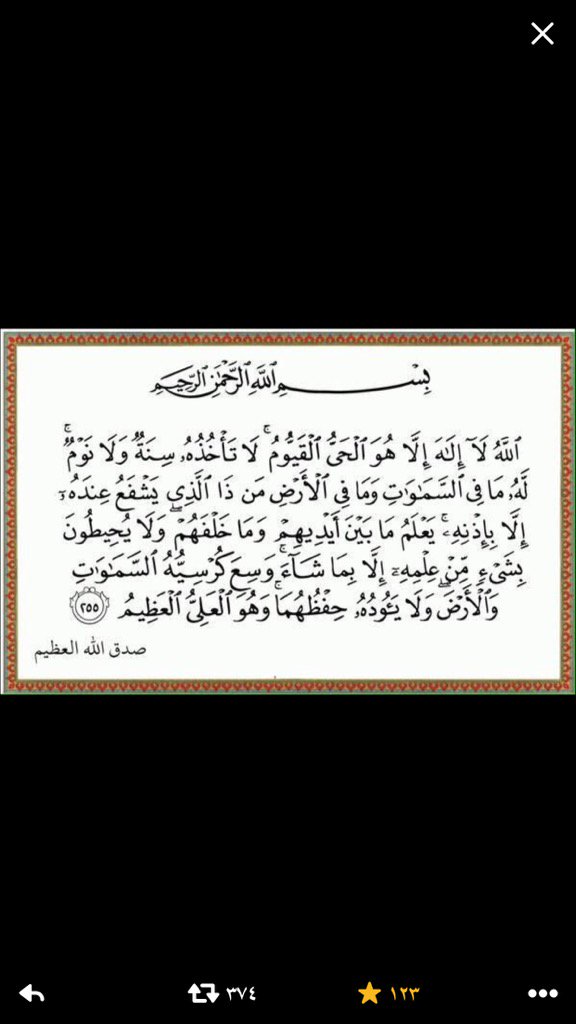 بِسْمِ ٱللَّهِ ٱلرَّحْمَٰنِ ٱلرَّحِيمِ
ٱللَّهُ لَآ إِلَٰهَ إِلَّا هُوَ ٱلْحَىُّ ٱلْقَيُّومُ ۚ لَا تَأْخُذُهُۥ سِنَةٌ وَلَا نَوْمٌ ۚ
لَّهُۥ مَا فِى ٱلسَّمَٰوَٰتِ وَمَا فِى ٱلْأَرْضِ ۗ مَن ذَا ٱلَّذِى يَشْفَعُ عِندَهُۥٓ
إِلَّا بِإِذْنِهِۦ ۚ يَعْلَمُ مَا بَيْنَ أَيْدِيهِمْ وَمَا خَلْفَهُمْ ۖ وَلَا يُحِيطُونَ
بِشَىْءٍ مِّنْ عِلْمِهِۦٓ إِلَّا بِمَا شَآءَ ۚ وَسِعَ كُرْسِيُّهُ ٱلسَّمَٰوَٰتِ
وَٱلْأَرْضَ ۖ وَلَا يَـُٔودُهُۥ حِفْظُهُمَا ۚ وَهُوَ ٱلْعَلِىُّ ٱلْعَظِيمُ ٢٥٥
صدق الله العظيم
٣٧٤ ١٢٣